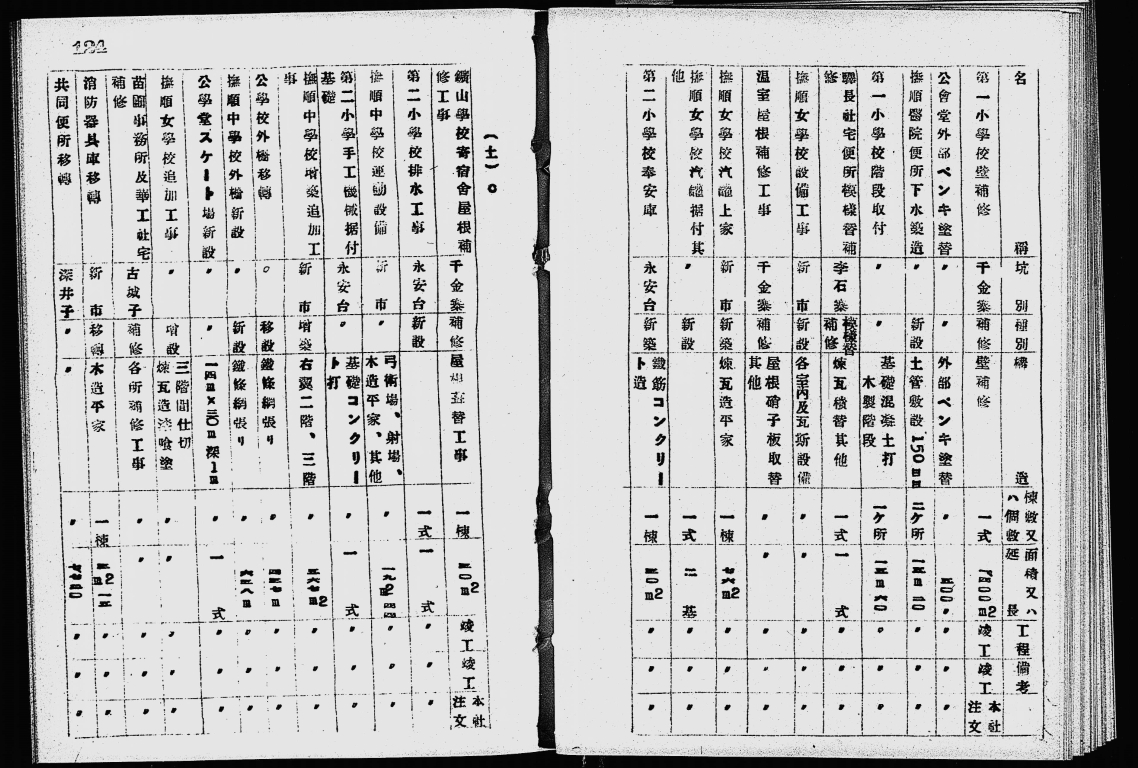 名 稱 坑 別 種別 構 造 棟數又ハ個數 面積又ハ延長 工程 備考
第一小學校壁補修 千金寨 補修 壁補修 一式 竣工 竣工 本社注文
公會堂外部ペンキ塗替 〃 〃 外部ペンキ塗替 〃 三〇〇〃 〃 〃 〃
撫順醫院便所下水築造 〃 新設 土管敷設 150mm 二ケ所 〃 〃 〃
第一小學校階段取付 〃 〃 基礎混凝土打 木製階段 一ケ所 〃 〃 〃
驛長社宅便所模樣替補修 李石寨 模樣替補修 煉瓦積替其他 一式 一式 〃 〃 〃
撫順女學校設備工事 新市 新設 各室內及瓦斯設備 〃 〃 〃 〃 〃
温室屋根補修工事 千金寨 補修 屋根硝子板取替其他 〃 〃 〃 〃 〃
撫順女學校汽罐上家 新市 新築 煉瓦造平家 一棟 七六m2 〃 〃 〃
撫順女學校汽罐据付其他 〃 新設 一式 二基 〃 〃 〃
第二小學校奉安庫 永安台 新築 鐵筋コンクリート造 一棟 三〇m2 〃 〃 〃
(土)。
鑛山學校寄宿舍屋根補修工事 千金寨 補修 屋根葢替工事 一棟 三〇m2 竣工 竣工 本社注文
第二小學校排水工事 永安台 新設 一式 一式 〃 〃 〃
撫順中學校運動設備 新市 〃 弓術場、射場、木造平家、其他 〃 〃 〃 〃
第二小學手工機械据付基礎 永安台 〃 基礎コンクリート打 〃 一式 〃 〃 〃
撫順中學校增築追加工事 新市 增築 右翼二階、三階 〃 三六七m2 〃 〃 〃
公學校外橋移轉 〃 移設 鐵條網張リ 〃 〃 〃 〃
撫順中學校外橋新設 〃 新設 鐵條網張リ 〃 〃 〃 〃
公學堂スケート場新設 〃 〃 一四m×三〇m深1m 〃 一式 〃 〃 〃
撫順女學校追加工事 〃 增設 三階間仕切 煉瓦造漆喰塗 〃 〃 〃 〃 〃
苗圃事務所及華工社宅補修 古城子 補修 各所補修工事 〃 〃 〃 〃 〃
消防器具庫移轉 新市 移轉 木造平家 一棟 〃 〃 〃
共同便所移轉 深井子 〃 〃 〃 〃 〃 〃